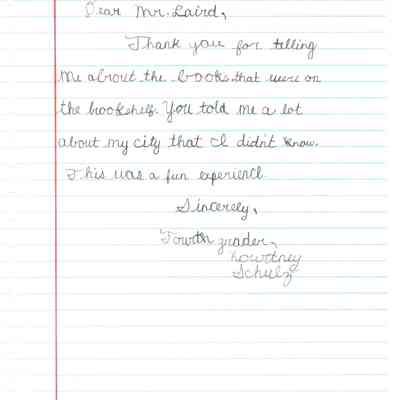 Dear Mr. Laird,
Thank you for telling
me about the books that were on
the bookshelf. You told me a lot
about my city that I didn't know.
This was a fun experience.
Sincerely,
Fourth grader,
Kourtney
Schulz